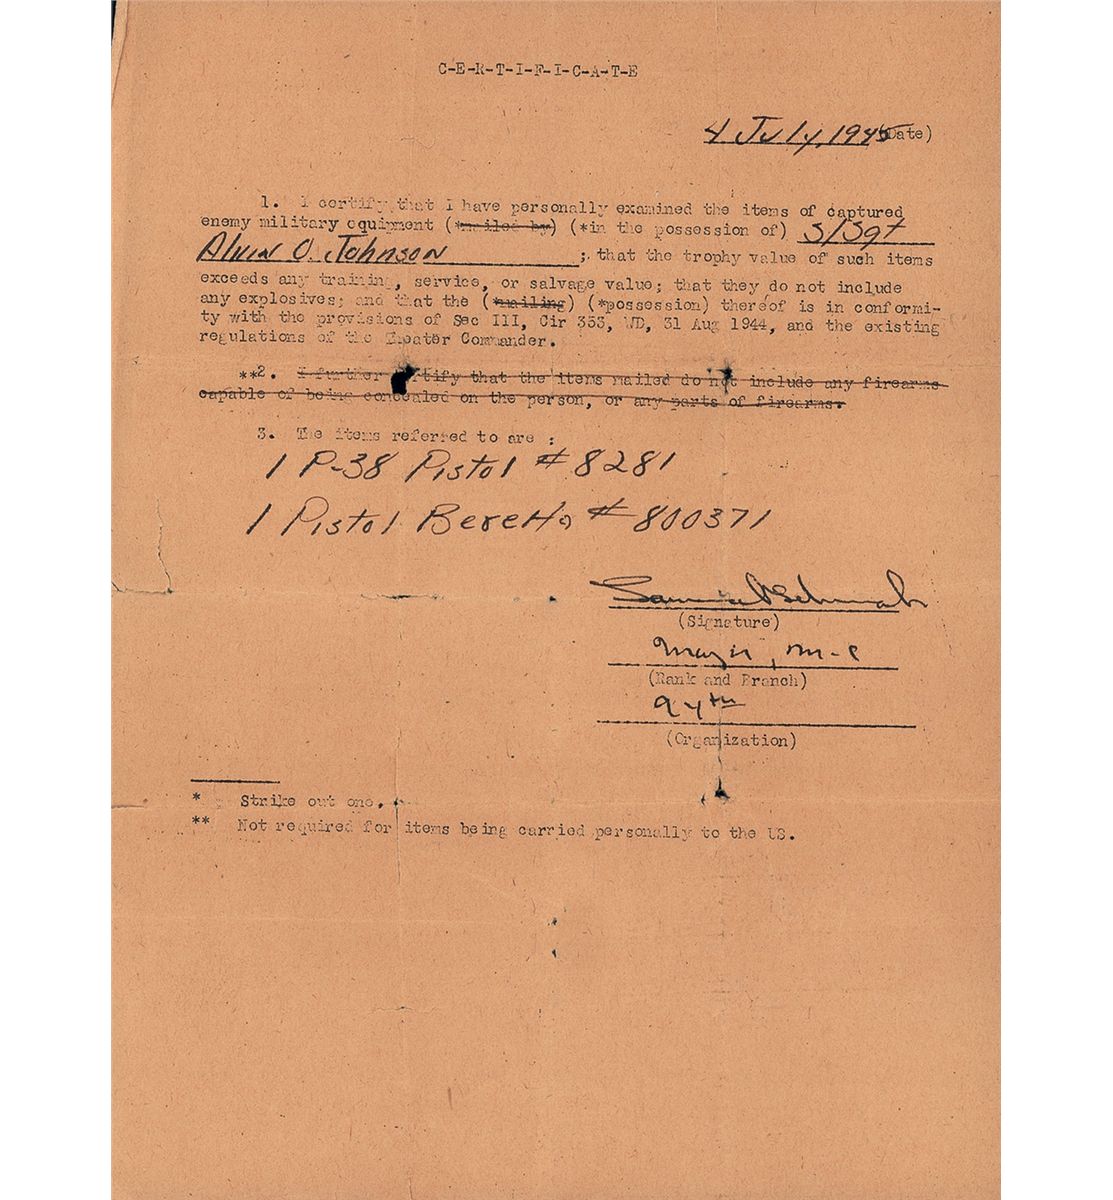 C-E-R-T-I-F-I-C-A-T-E
4 July, 1945 (Date)
1. I certify that I have personally examined the items of captured
enemy military equipment (*mailed by) (*in the possession of) S/Sgt
Alvin O. Johnson ; that the trophy value of such items
exceeds any training, service, or salvage value; that they do not include
any explosives; and that the (*mailing) (*possession) thereof is in conformi-
ty with the provisions of Sec III, Cir 353, WD, 31 Aug 1944, and the existing
regulations of the Theater Commander.
**2. I further certify that the items mailed do not include any firearms
capable of being concealed on the person, or any parts of firearms.
3. The items referred to are :
1 P-38 Pistol # 8281
1 Pistol Beretta # 800371
(Signature)
Major, M-C
(Rank and Branch)
94th
(Organization)
* Strike out one.
** Not required for items being carried personally to the US.